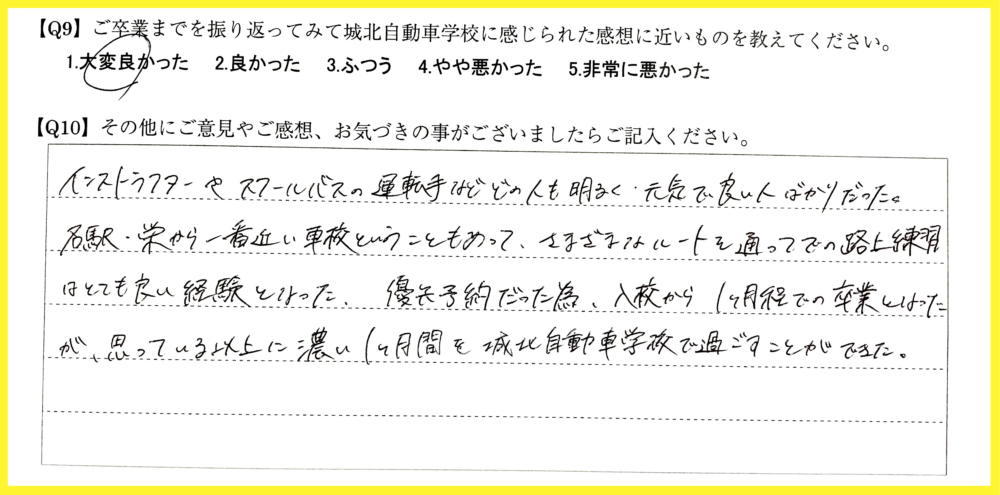 【Q9】ご卒業までを振り返ってみて城北自動車学校に感じられた感想に近いものを教えてください。
1.大変良かった　2.良かった　3.ふつう　4.やや悪かった　5.非常に悪かった
【Q10】その他にご意見やご感想、お気づきの事がございましたらご記入ください。
インストラクターやスクールバスの運転手などどの人も明るく・元気で良い人ばかりだった。
名駅・栄から一番近い車校ということもあって、さまざまなルートを通ってでの路上練習
はとても良い経験となった。優先予約だった為、入校から1ヶ月程での卒業となった
が、思っている以上に濃い1ヶ月間を城北自動車学校で過ごすことができた。